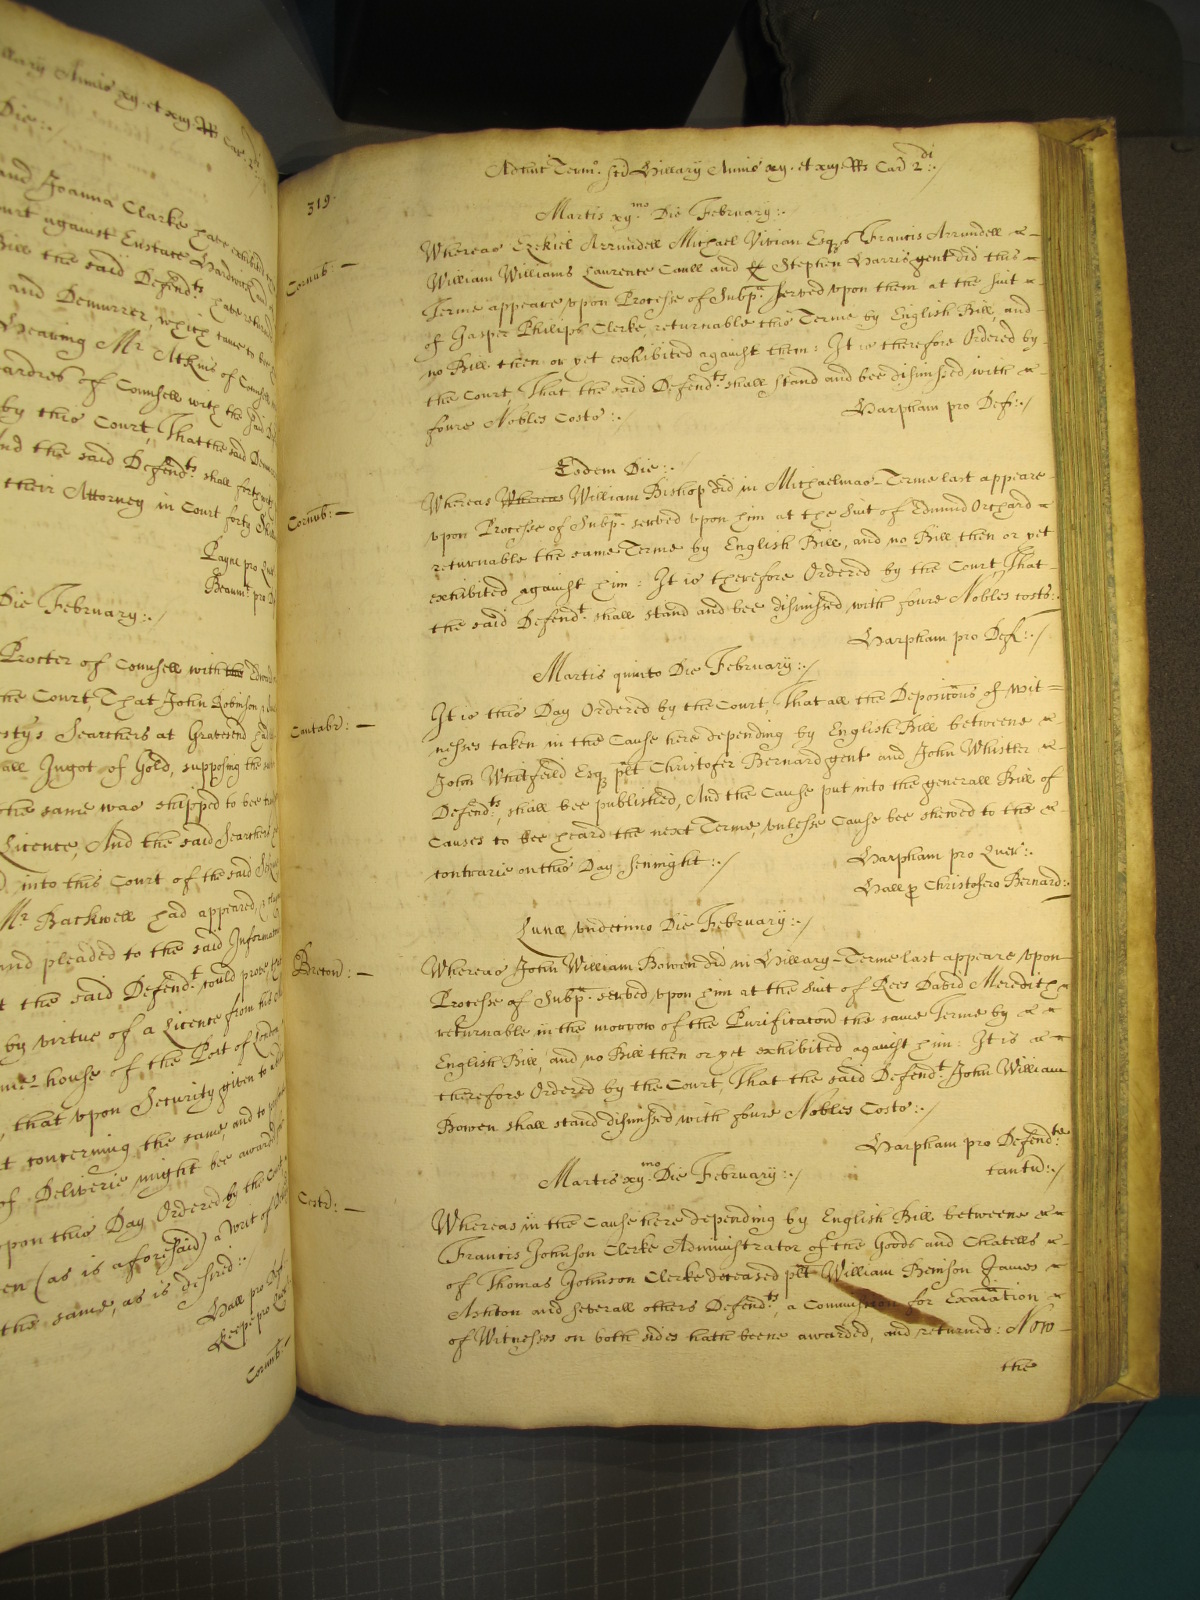 Hillary Annis xij. et xiij. RRs Car. 2di
Die:./
and Joanna Clarke have exhibited
Court against Eustace Hardwick and
Bill the said Defendts have
and Demurrer, which came to bee
Hearing Mr Atkins of Counsell
ardres of Counsell with the said
by this Court, That the said
And the said Defendts shall forthwith
their Attorney in Court forty
Payne pro Quer
Beaumt pro
Die February:./
Procter of Counsell with the Edward
the Court, That John Robinson
Searchers at Gravesend
all Ingot of Gold, supposing the
the same was shipped to bee
Licence, And the said Searchers
into this Court of the said
Mr Backwell had appeared,
and pleaded to the said Information
t the said Defendt could
by virtue of a Licence from
house of the Port of London
, that upon Security given to
t concerning the same, and to
of Deliverie might bee awarded
upon this Day Ordered by the Court
en (as is aforesaid) a writ of
the same, as is desired:./
Hall pro Def
Keepe pro Quer
Cornub:
Adhuc Term. Scd Hillary Annis xij. et xiij. RRs Car 2di:./
319.
Martis xij.mo Die February:.
Cornub: —
Whereas Ezekiel Arrundell Michael Vivian Esqs Francis Arrundell &
William Williams Laurence Caull and Stephen Harris gent did this
Terme appeare upon Processe of Subpa served upon them at the suit
of Gasper Philips Clerke, returnable this Terme by English Bill, and
no Bill then or yet exhibited against them: It is therefore Ordered by
the Court, That the said Defendts shall stand and bee dismissed with
foure Nobles Costs:./
Harpham pro Def:./
Eodem Die:.
Cornub: —
Whereas Whereas William Bishop did in Michaelmas-Terme last appeare
upon Processe of Subpa served upon him at the Suit of Edmund Orchard
returnable the same Terme by English Bill, and no Bill then or yet
exhibited against him: It is therefore Ordered by the Court, That
the said Defendt shall stand and bee dismissed with foure Nobles costs:.
Harpham pro Def:./
Martis quinto Die February:./
Cantabr: —
It is this Day Ordered by the Court, That all the Depositons of wit=
nesses taken in the Cause here depending by English Bill betweene
John Whitfeild Esq plt Christofer Bernard gent and John Whistler
Defendts, shall bee published, And the Cause put into the generall Bill of
Causes to bee heard the next Terme, unlesse Cause bee shewed to the
contrarie on this Day Sennight:./
Harpham pro Quer:.
Hall p Christofero Bernard:.
Lunæ undecimo Die February:./
Brecon: —
Whereas John William Bowen did in Hillary-Terme last appeare upon
Processe of Subpa served upon him at the suit of Rees David Meredith
returnable in the morrow of the Purificacon the same Terme by
English Bill, and no Bill then or yet exhibited against him: It is
therefore Ordered by the Court, That the said Defendt John William
Bowen shall stand dismissed with foure Nobles Costs:./
Harpham pro Defendte
tantu:./
Martis xij.mo Die February:./
Cestr: —
Whereas in the Cause here depending by English Bill betweene
Francis Johnson Clerke Administrator of the Goods and Chatells
of Thomas Johnson Clerke deceased plt William Bemson James
Ashton and severall others Defendts, a Commission for Exaiation
of Witnesses on both sides hath beene awarded, and returned: Now
the